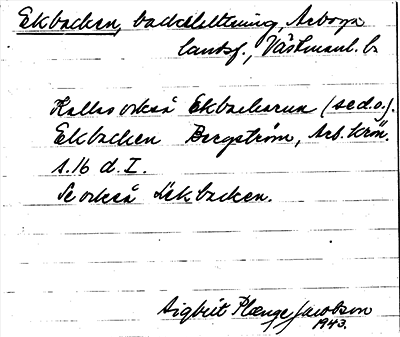 Ekbacken, backsluttning, Arboga
landsf., Västmanl. l.
Kallas också Ekbackarna (se d.o.).
Ekbacken Bergström, Arb. krön.
s. 16 d. I.
Se också Ekbacken.
Sigbrit Plænge Jacobson
1943.